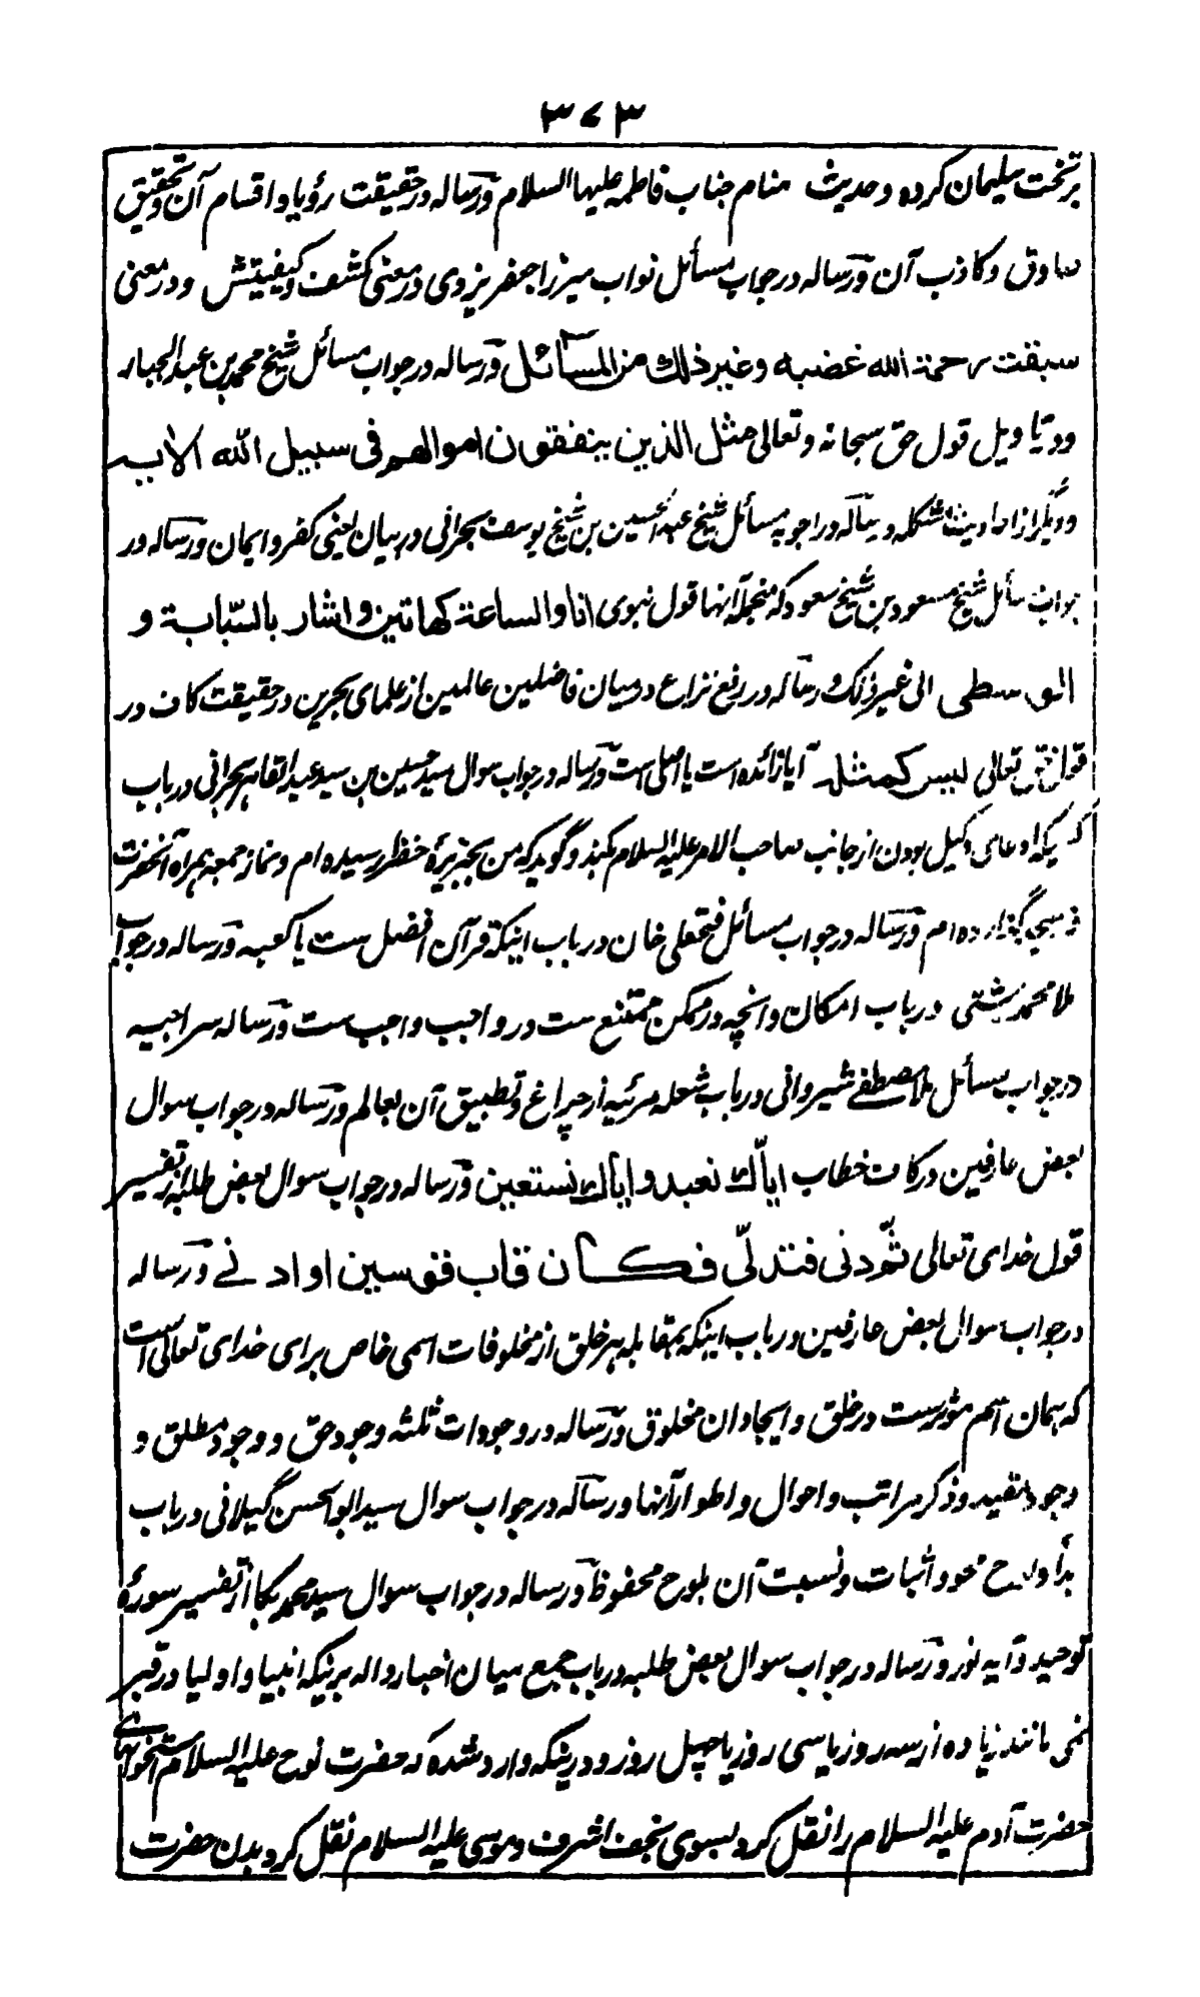 ۳۷۳
بر تخت سلیمان کرده و حدیث منام جناب فاطمه علیها السلام و رساله در حقیقت رؤیا و اقسام آن و تحقیق
صادق و کاذب آن و رساله در جواب مسائل نواب میرزا جعفر یزدی در معنی کشف و کیفیتش و در معنی
سبقت رحمة الله غضبه و غیر ذلك من المسائل و رساله در جواب مسائل شیخ محمد بن عبد الجبار
و در تاویل قول حق سبحانه و تعالی مثل الذین ینفقون اموالهم فی سبیل الله الایه
و دیگر از احادیث مشکله و رساله در اجوبه مسائل شیخ عبد الحسین بن شیخ یوسف بحرانی در بیان یعنی کفر و ایمان و رساله در
جواب مسائل شیخ مسعود بن شیخ سعود که منجمله آنها قول نبوی انا و الساعة کهاتین و اشار بالسّبابة و
الوسطی الی غیر ذلک و رساله در رفع نزاع در میان فاضلین عالمین از علمای بحرین در حقیقت کاف در
قول حق تعالی لیس کمثله آیا زائده است یا اصلی است و رساله در جواب سوال سید حسین بن سید عبد القاهر بحرانی در باب
آنکه یکه ادعای وکیل بودن از جانب صاحب الامر علیه السلام بکند و گوید که من بجزیرهٔ خضر رسیده ام و نماز جمعه همراه آنحضرت
گذارده ام و رساله در جواب مسائل فتحعلی خان در باب اینکه قرآن افضل ست یا کعبه و رساله در جواب
ملا محمد رشتی در باب امکان و انچه در ممکن ممتنع ست در واجب واجب ست و رساله سراجیه
در جواب مسائل ملا مصطفے شیروانی در باب شعله مرئیه از چراغ و تطبیق آن بعالم و رساله در جواب سوال
بعض عارفین در کاف خطاب ایاّك نعبد و ایاك نستعین و رساله در جواب سوال بعض طلبه در تفسیر
قول خدای تعالی ثمّ دنی فتدلّی فکان قاب قوسین او ادنے و رساله
در جواب سوال بعض عارفین در باب اینکه بمقابله هر خلق از مخلوقات اسمی خاص برای خدای تعالی است
که همان اسم موثرست در خلق و ایجاد ان مخلوق و رساله در وجودات ثلثه وجود حق و وجود مطلق و
وجود مقید و ذکر مراتب و احوال و اطوار آنها و رساله در جواب سوال سید ابو الحسن گیلانی در باب
بدا و لوح محو و اثبات و نسبت آن بلوح محفوظ و رساله در جواب سوال سید محمد بکا از تفسیر سورهٔ
توحید و آیه نور و رساله در جواب سوال بعض طلبه در باب جمع میان اخبار داله بر نیکه انبیا و اولیا در قبر
نمی مانند زیاده از سه روز یا سی روز یا چهل روز و در ینکه وارد شده که حضرت نوح علیه السلام استخوانهای
حضرت آدم علیه السلام را نقل کرد بسوی نجف اشرف و موسی علیه السلام نقل کرد بدن حضرت